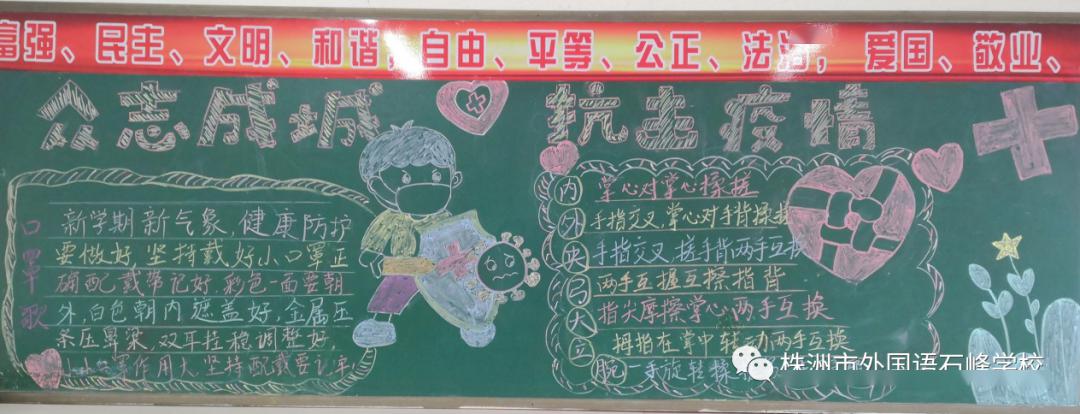 富强、民主、文明、和谐,自由、平等、公正、法治,爱国、敬业、
众志成城 抗主疫情
口罩歌
新学期新气象,健康防护
要做好,坚持戴好小口罩正
确配戴常记好,彩色一面要朝
外,白色朝内遮盖好,金属压
条压鼻梁,双耳挂稳调整好,
小口罩作用大坚持配戴要记牢
内 掌心对掌心揉搓
外 手指交叉,掌心对手背揉搓
夹 手指交叉,搓手背两手互换
弓 两手互握互擦指背
大 指尖摩擦掌心,两手互换
立 拇指在掌中转动两手互换
腕 一手旋转揉
株洲市外国语石峰学校